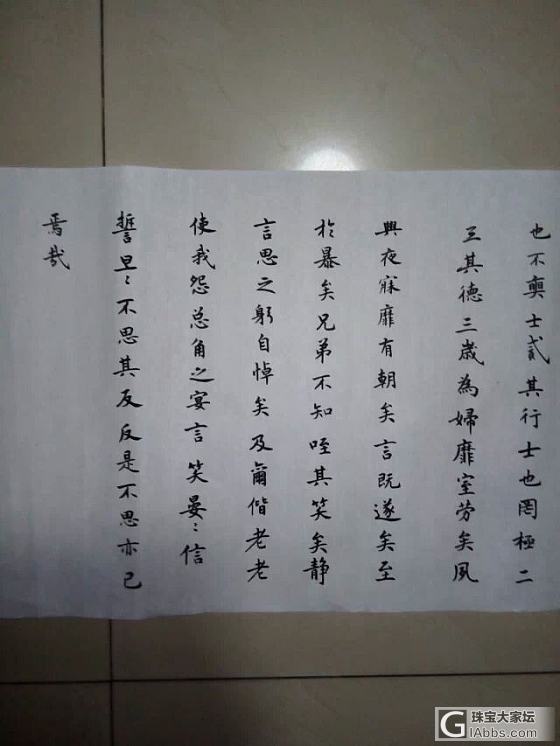 也不爽士貳其行士也罔極二
三其德三歲為婦靡室勞矣夙
興夜寐靡有朝矣言既遂矣至
於暴矣兄弟不知咥其笑矣静
言思之躬自悼矣及爾偕老老
使我怨总角之宴言笑晏〻信
誓旦〻不思其反反是不思亦已
焉哉
珠宝大家坛
GIAbbs.com